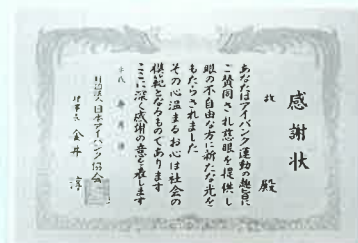 感謝状
故 殿
あなたはアイバンク運動の趣旨に
ご賛同され慈眼を提供し
眼の不自由な方に新たな光を
もたらされました
その心温まるお心は社会の
模範となるものであります
ここに深く感謝の意を表します
平成 年 月 日
財団法人日本アイバンク協会
理事長 金井 淳